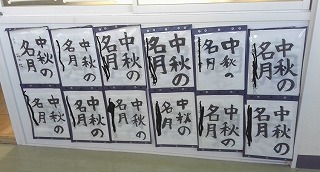 中秋の
名月
中秋の
名月
中秋の
名月
中秋の
名月
中秋の
名月
中秋の
名月
中秋の
名月
中秋の
名月
中秋の
名月
中秋の
名月
中秋の
名月
中秋の
名月